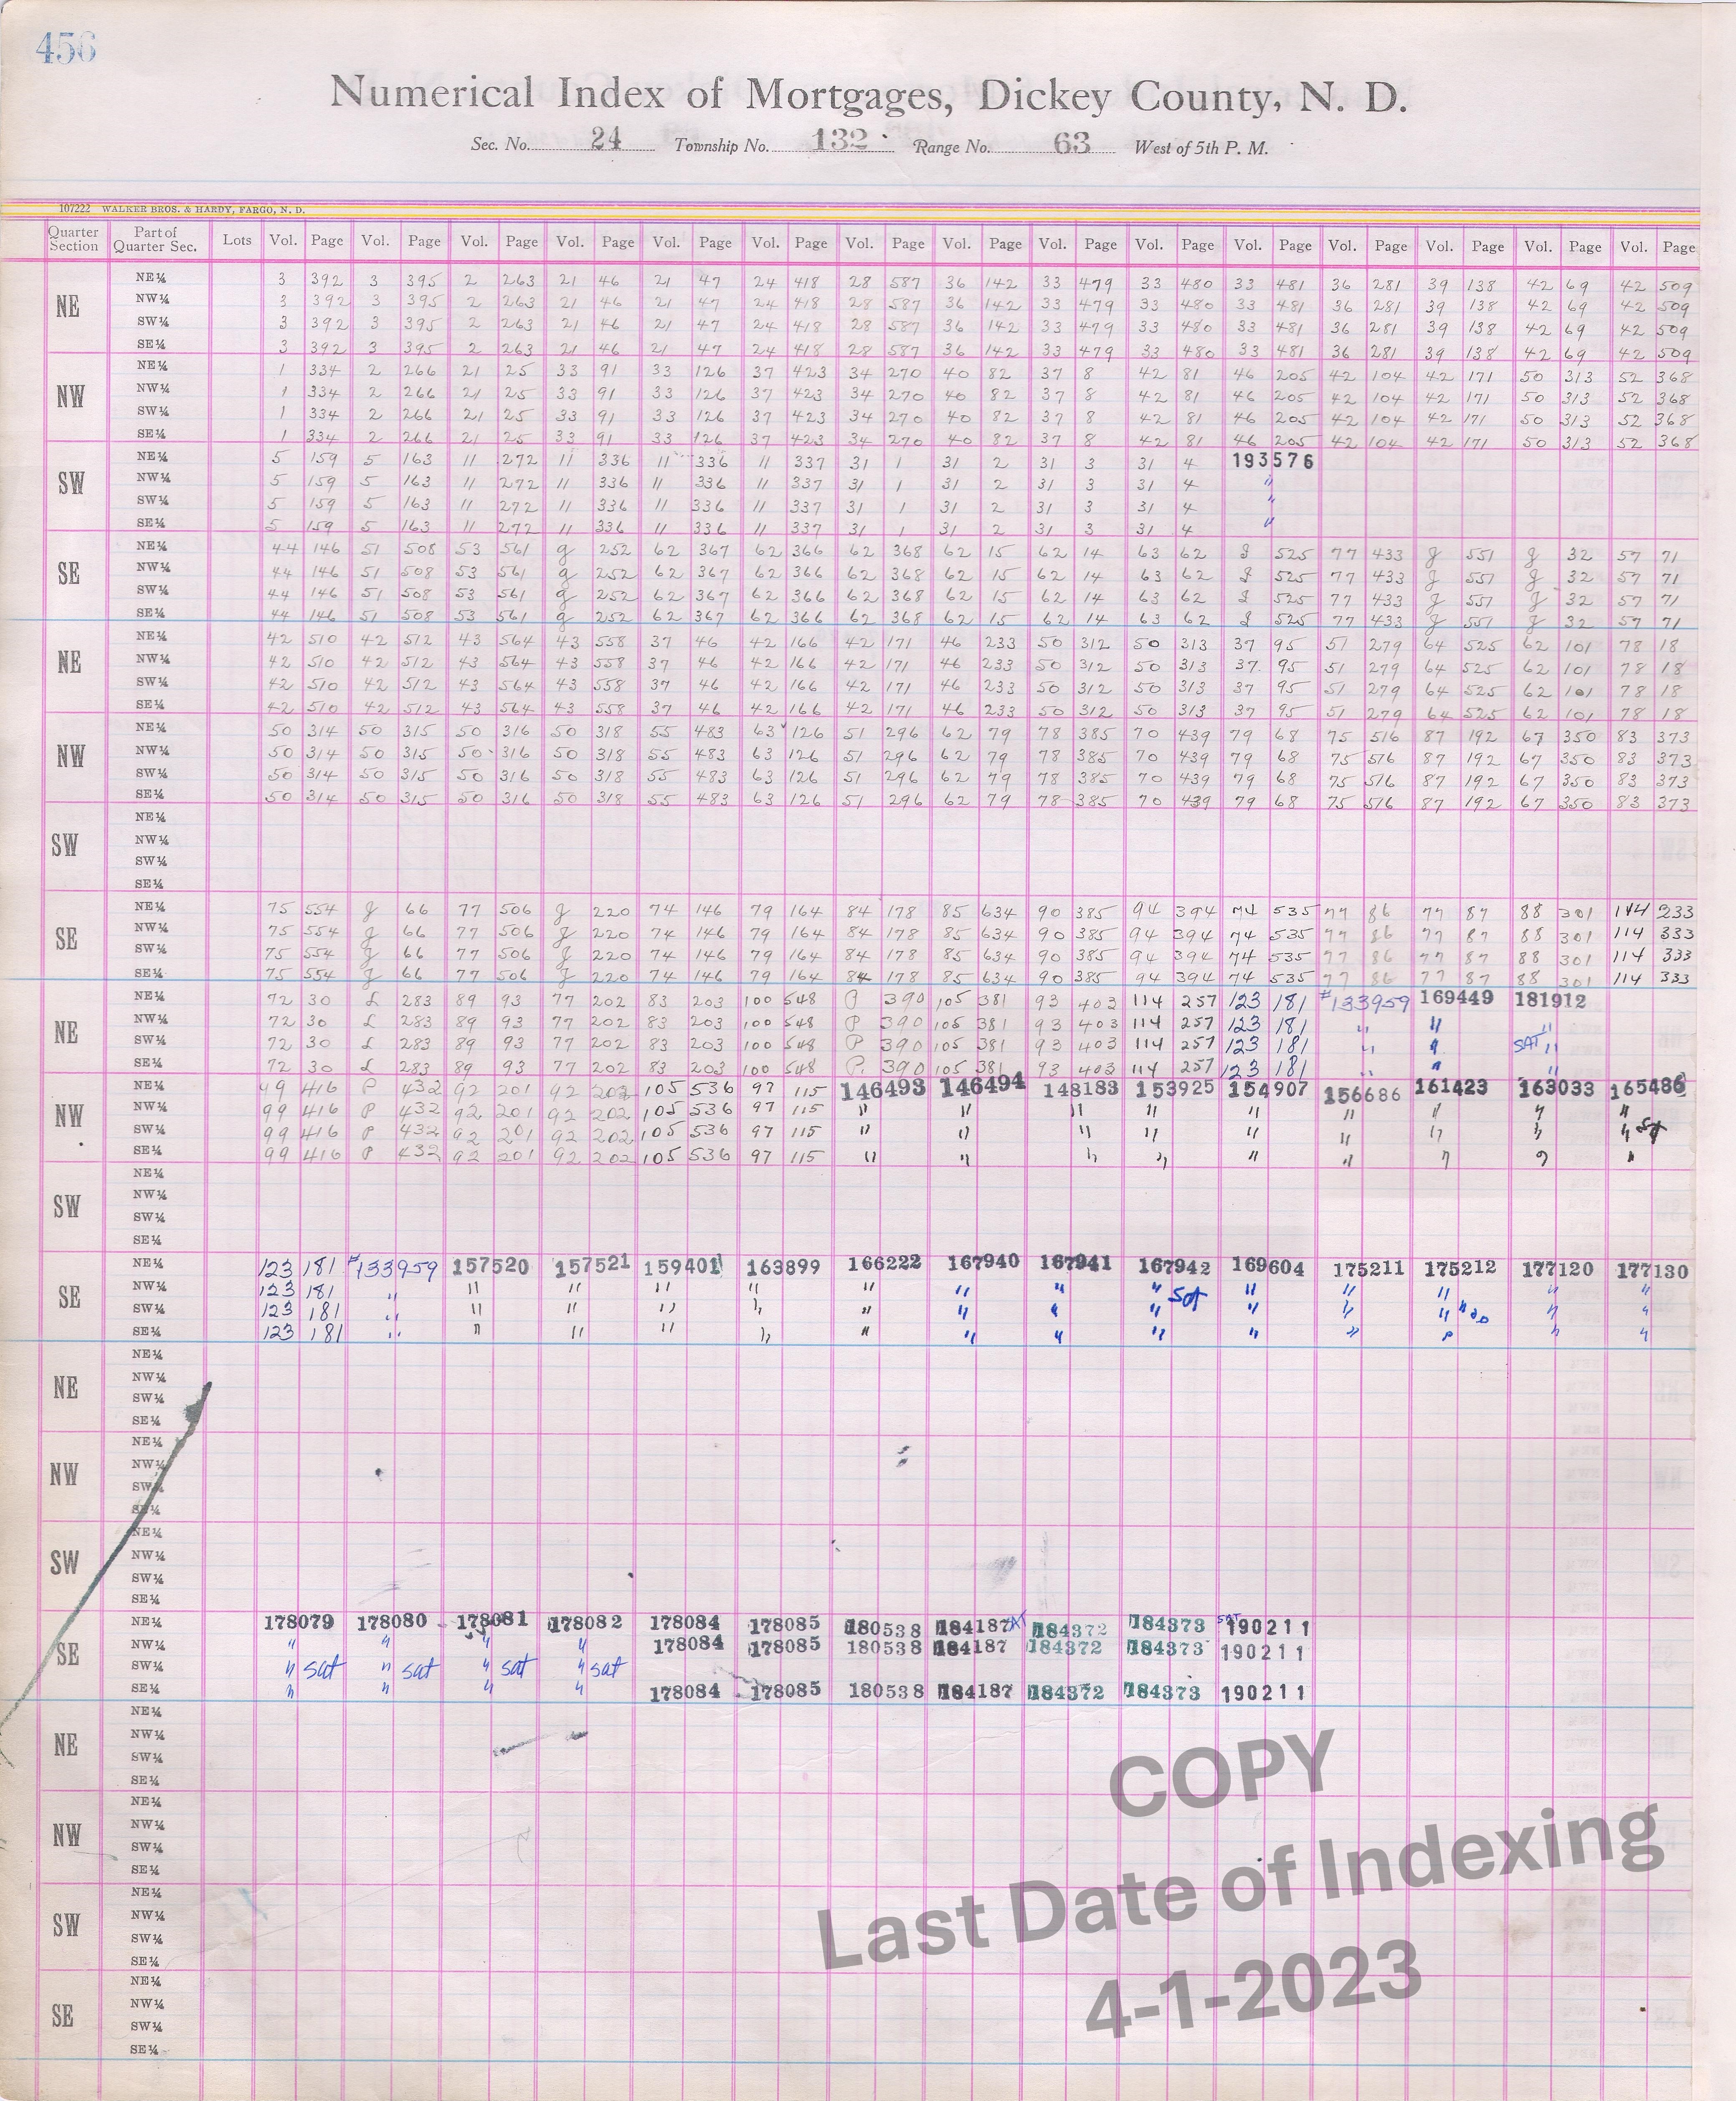 456
Numerical Index of Mortgages, Dickey County, N. D.
Sec. No. 24 Township No. 132 Range No. 63 West of 5th P. M.
107222 WALKER BROS. & HARDY, FARGO, N. D.
Quarter Section Part of Quarter Sec. Lots Vol. Page Vol. Page Vol. Page Vol. Page Vol. Page Vol. Page Vol. Page Vol. Page Vol. Page Vol. Page Vol. Page Vol. Page Vol. Page Vol. Page Vol. Page
NE
NE¼ 3 392 3 395 2 263 21 46 21 47 24 418 28 587 36 142 33 479 33 480 33 481 36 281 39 138 42 69 42 509
NW¼ 3 392 3 395 2 263 21 46 21 47 24 418 28 587 36 142 33 479 33 480 33 481 36 281 39 138 42 69 42 509
SW¼ 3 392 3 395 2 263 21 46 21 47 24 418 28 587 36 142 33 479 33 480 33 481 36 281 39 138 42 69 42 509
SE¼ 3 392 3 395 2 263 21 46 21 47 24 418 28 587 36 142 33 479 33 480 33 481 36 281 39 138 42 69 42 509
NW
NE¼ 1 334 2 266 21 25 33 91 33 126 37 423 34 270 40 82 37 8 42 81 46 205 42 104 42 171 50 313 52 368
NW¼ 1 334 2 266 21 25 33 91 33 126 37 423 34 270 40 82 37 8 42 81 46 205 42 104 42 171 50 313 52 368
SW¼ 1 334 2 266 21 25 33 91 33 126 37 423 34 270 40 82 37 8 42 81 46 205 42 104 42 171 50 313 52 368
SE¼ 1 334 2 266 21 25 33 91 33 126 37 423 34 270 40 82 37 8 42 81 46 205 42 104 42 171 50 313 52 368
SW
NE¼ 5 159 5 163 11 272 11 336 11 336 11 337 31 1 31 2 31 3 31 4 193576
NW¼ 5 159 5 163 11 272 11 336 11 336 11 337 31 1 31 2 31 3 31 4 "
SW¼ 5 159 5 163 11 272 11 336 11 336 11 337 31 1 31 2 31 3 31 4 "
SE¼ 5 159 5 163 11 272 11 336 11 336 11 337 31 1 31 2 31 3 31 4 "
SE
NE¼ 44 146 51 508 53 561 g 252 62 367 62 366 62 368 62 15 62 14 63 62 g 525 77 433 g 551 g 32 57 71
NW¼ 44 146 51 508 53 561 g 252 62 367 62 366 62 368 62 15 62 14 63 62 g 525 77 433 g 551 g 32 57 71
SW¼ 44 146 51 508 53 561 g 252 62 367 62 366 62 368 62 15 62 14 63 62 g 525 77 433 g 551 g 32 57 71
SE¼ 44 146 51 508 53 561 g 252 62 367 62 366 62 368 62 15 62 14 63 62 g 525 77 433 g 551 g 32 57 71
NE
NE¼ 42 510 42 512 43 564 43 558 37 46 42 166 42 171 46 233 50 312 50 313 37 95 51 279 64 525 62 101 78 18
NW¼ 42 510 42 512 43 564 43 558 37 46 42 166 42 171 46 233 50 312 50 313 37 95 51 279 64 525 62 101 78 18
SW¼ 42 510 42 512 43 564 43 558 37 46 42 166 42 171 46 233 50 312 50 313 37 95 51 279 64 525 62 101 78 18
SE¼ 42 510 42 512 43 564 43 558 37 46 42 166 42 171 46 233 50 312 50 313 37 95 51 279 64 525 62 101 78 18
NW
NE¼ 50 314 50 315 50 316 50 318 55 483 63 126 51 296 62 79 78 385 70 439 79 68 75 516 87 192 67 350 83 373
NW¼ 50 314 50 315 50 316 50 318 55 483 63 126 51 296 62 79 78 385 70 439 79 68 75 516 87 192 67 350 83 373
SW¼ 50 314 50 315 50 316 50 318 55 483 63 126 51 296 62 79 78 385 70 439 79 68 75 516 87 192 67 350 83 373
SE¼ 50 314 50 315 50 316 50 318 55 483 63 126 51 296 62 79 78 385 70 439 79 68 75 516 87 192 67 350 83 373
SW
NE¼
NW¼
SW¼
SE¼
SE
NE¼ 75 554 g 66 77 506 g 220 74 146 79 164 84 178 85 634 90 385 94 394 74 535 77 86 77 87 88 301 114 233
NW¼ 75 554 g 66 77 506 g 220 74 146 79 164 84 178 85 634 90 385 94 394 74 535 77 86 77 87 88 301 114 333
SW¼ 75 554 g 66 77 506 g 220 74 146 79 164 84 178 85 634 90 385 94 394 74 535 77 86 77 87 88 301 114 333
SE¼ 75 554 g 66 77 506 g 220 74 146 79 164 84 178 85 634 90 385 94 394 74 535 77 86 77 87 88 301 114 333
NE
NE¼ 72 30 L 283 89 93 77 202 83 203 100 548 P 390 105 381 93 403 114 257 123 181 #133959 169449 181912
NW¼ 72 30 L 283 89 93 77 202 83 203 100 548 P 390 105 381 93 403 114 257 123 181 " " "
SW¼ 72 30 L 283 89 93 77 202 83 203 100 548 P 390 105 381 93 403 114 257 123 181 " " SAT "
SE¼ 72 30 L 283 89 93 77 202 83 203 100 548 P 390 105 381 93 403 114 257 123 181 " " "
NW
NE¼ 49 416 P 432 92 201 92 202 105 536 97 115 146493 146494 148183 153925 154907 156686 161423 163033 165486
NW¼ 99 416 P 432 92 201 92 202 105 536 97 115 " " " " " " " " "
SW¼ 99 416 P 432 92 201 92 202 105 536 97 115 " " " " " " " " " Sat
SE¼ 99 416 P 432 92 201 92 202 105 536 97 115 " " " " " " " " "
SW
NE¼
NW¼
SW¼
SE¼
SE
NE¼ 123 181 #133959 157520 157521 159401 163899 166222 167940 167941 167942 169604 175211 175212 177120 177130
NW¼ 123 181 " " " " " " " " " Sat " " " " "
SW¼ 123 181 " " " " " " " " " " " " " "
SE¼ 123 181 " " " " " " " " " " " " " "
NE
NE¼
NW¼
SW¼
SE¼
NW
NE¼
NW¼
SW¼
SE¼
SW
NE¼
NW¼
SW¼
SE¼
SE
NE¼ 178079 178080 178081 178082 178084 178085 180538 184187 SAT 184372 184373 SAT 190211
NW¼ " " " " 178084 178085 180538 184187 184372 184373 190211
SW¼ " sat " sat " sat " sat
SE¼ " " " " 178084 178085 180538 184187 184372 184373 190211
NE
NE¼
NW¼
SW¼
SE¼
NW
NE¼
NW¼
SW¼
SE¼
SW
NE¼
NW¼
SW¼
SE¼
SE
NE¼
NW¼
SW¼
SE¼
COPY
Last Date of Indexing
4-1-2023